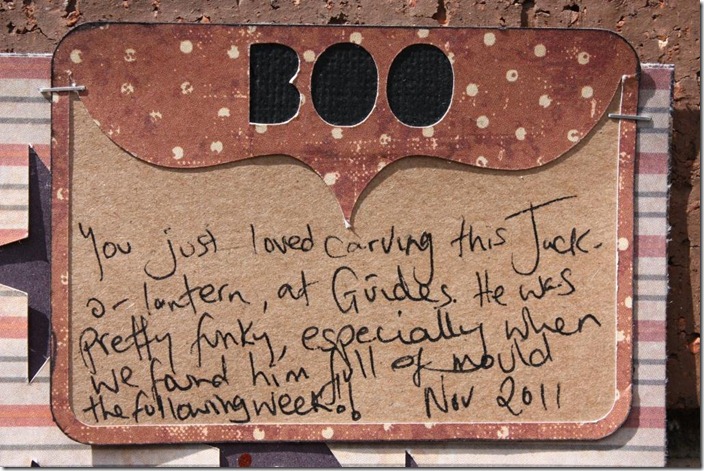 BOO
You just loved carving this Jack-
o-lantern, at Guides. He was
pretty funky, especially when
we found him full of mould
the following week!!  Nov 2011